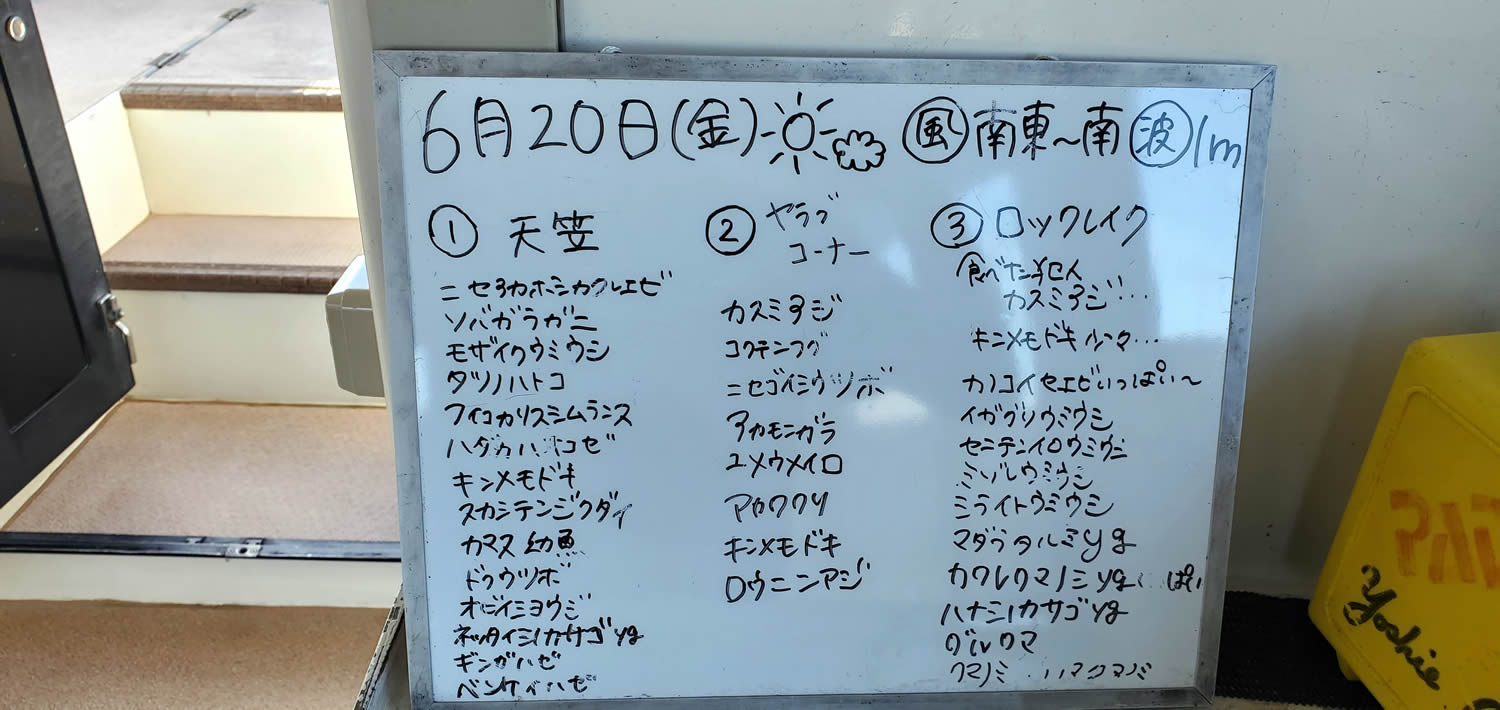 6月20日(金) 風 南東〜南 波 1m
① 天笠
ニセアカホシカクレエビ
ソバガラガニ
モザイクウミウシ
タツノハトコ
フィコカリスシムランス
ハダカハオコゼ
キンメモドキ
スカシテンジクダイ
カマス幼魚
ドクウツボ
オビイシヨウジ
ネッタイミノカサゴyg
ギンガハゼ
ベンケイハゼ
② ヤラブ
コーナー
カスミアジ
コクテンフグ
ニセゴイシウツボ
アカモンガラ
ユメウメイロ
アカククリ
キンメモドキ
ロウニンアジ
③ ロックレイク
食べた半仁人
カスミアジ…
キンメモドキ
カノコイセエビいっぱい〜
イガグリウミウシ
センテンイロウミウシ
ミゾレウミウシ
ミライトウミウシ
マダラタルミyg
カクレクマノミyg
ハナミノカサゴyg
グルクマ
クマノミ ハマクマノミ
Yoshie